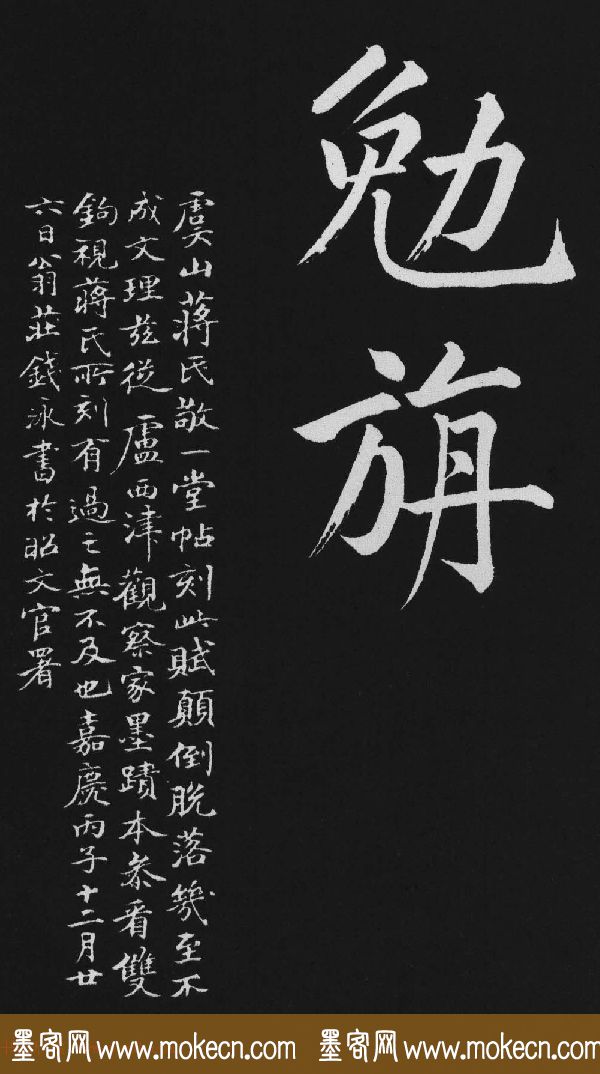 勉旃
虞山蔣氏敬一堂帖刻此賦顛倒脫落幾至不
成文理茲從盧西津觀察家墨蹟本叅看雙
鉤視蔣氏所刻有過之無不及也嘉慶丙子十二月廿
六日翁莊錢泳書於昭文官署
墨客网 www.mokecn.com 墨客网 www.mokecn.com